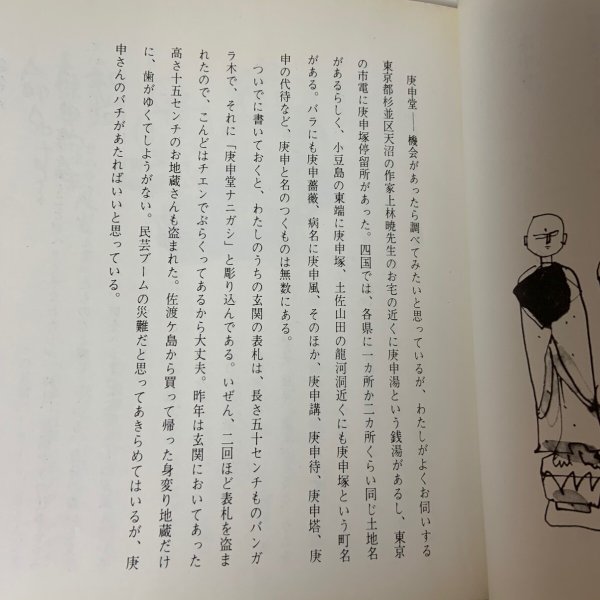 庚申堂――機会があったら調べてみたいと思っているが、わたしがよくお伺いする
東京都杉並区天沼の作家上林暁先生のお宅の近くに庚申湯という銭湯があるし、東京
の市電に庚申塚停留所があった。四国では、各県に一カ所か二カ所くらい同じ土地名
があるらしく、小豆島の東端に庚申塚、土佐山田の龍河洞近くにも庚申塚という町名
がある。バラにも庚申薔薇、病名に庚申風、そのほか、庚申講、庚申待、庚申塔、庚
申の代待など、庚申と名のつくものは無数にある。
ついでに書いておくと、わたしのうちの玄関の表札は、長さ五十センチものバンガ
ラ木で、それに「庚申堂ナニガシ」と彫り込んである。いぜん、二回ほど表札を盗ま
れたので、こんどはチエンでぶらくってあるから大丈夫。昨年は玄関においてあった
高さ十五センチのお地蔵さんも盗まれた。佐渡ケ島から買って帰った身変り地蔵だけ
に、歯がゆくてしようがない。民芸ブームの災難だと思ってあきらめてはいるが、庚
申さんのバチがあたればいいと思っている。